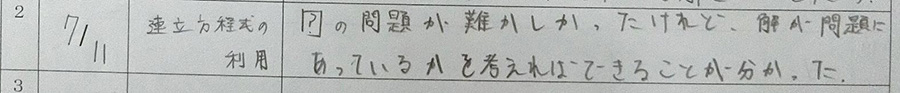 2
7/11
連立方程式の
利用
?の問題が難かしかったけれど、解が問題に
あっているかを考えればできることが分かった.
3